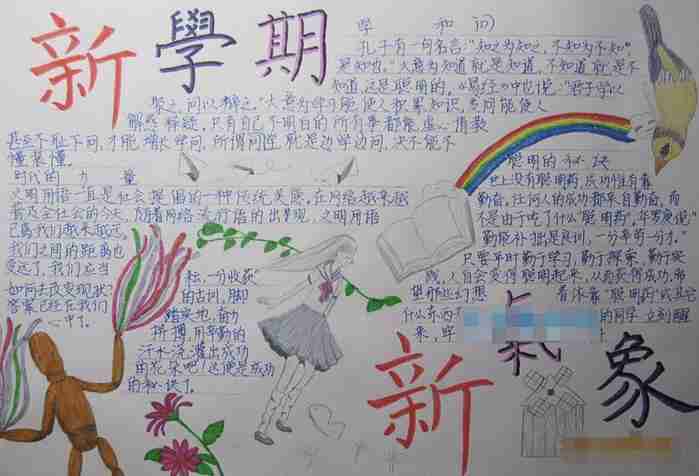 新學期
學 和 问
孔子有一句名言:“知之为知之,不知为不知”
是知也。”大意为知道就是知道,不知道就是不
知道,这是聪明的。《易经》中也说:“君子学以
聚之,问以辩之。”大意为学习能使人积累知识,多问能使人
解疑释疑,只有自己不明白的所有事都能虚心请教
甚至不耻下问,才能增长学问,所谓问
就是边学边问,决不能不
懂装懂。
时代的力量
文明用语一直是社会提倡的一种传统美德,在网络越来越
普及全社会的今天,随着网络流行语的出现,文明用语
已离我们越来越远,
我们之间的距离也
变远了,我们应当
如何去改变现状?
答案已经在我们
心中了。
耘,一分收获”
的古训,脚
踏实地,奋力
拼搏,用辛勤的
汗水浇灌出成功
的花朵吧!这便是成功
的秘诀了。
聪明的秘诀
世上没有聪明药,成功惟有靠
勤奋,任何人的成功都来自勤奋,而
不是由于吃了什么聪明药,
勤能补拙是良训,一分辛劳一分才。”
只要平时勤于学习,勤于探索,勤于实
践,人自会变得聪明起来,从而获得成功,
那些幻想着依靠“聪明药”
什么东西
的同学立刻醒
来,
新氣象